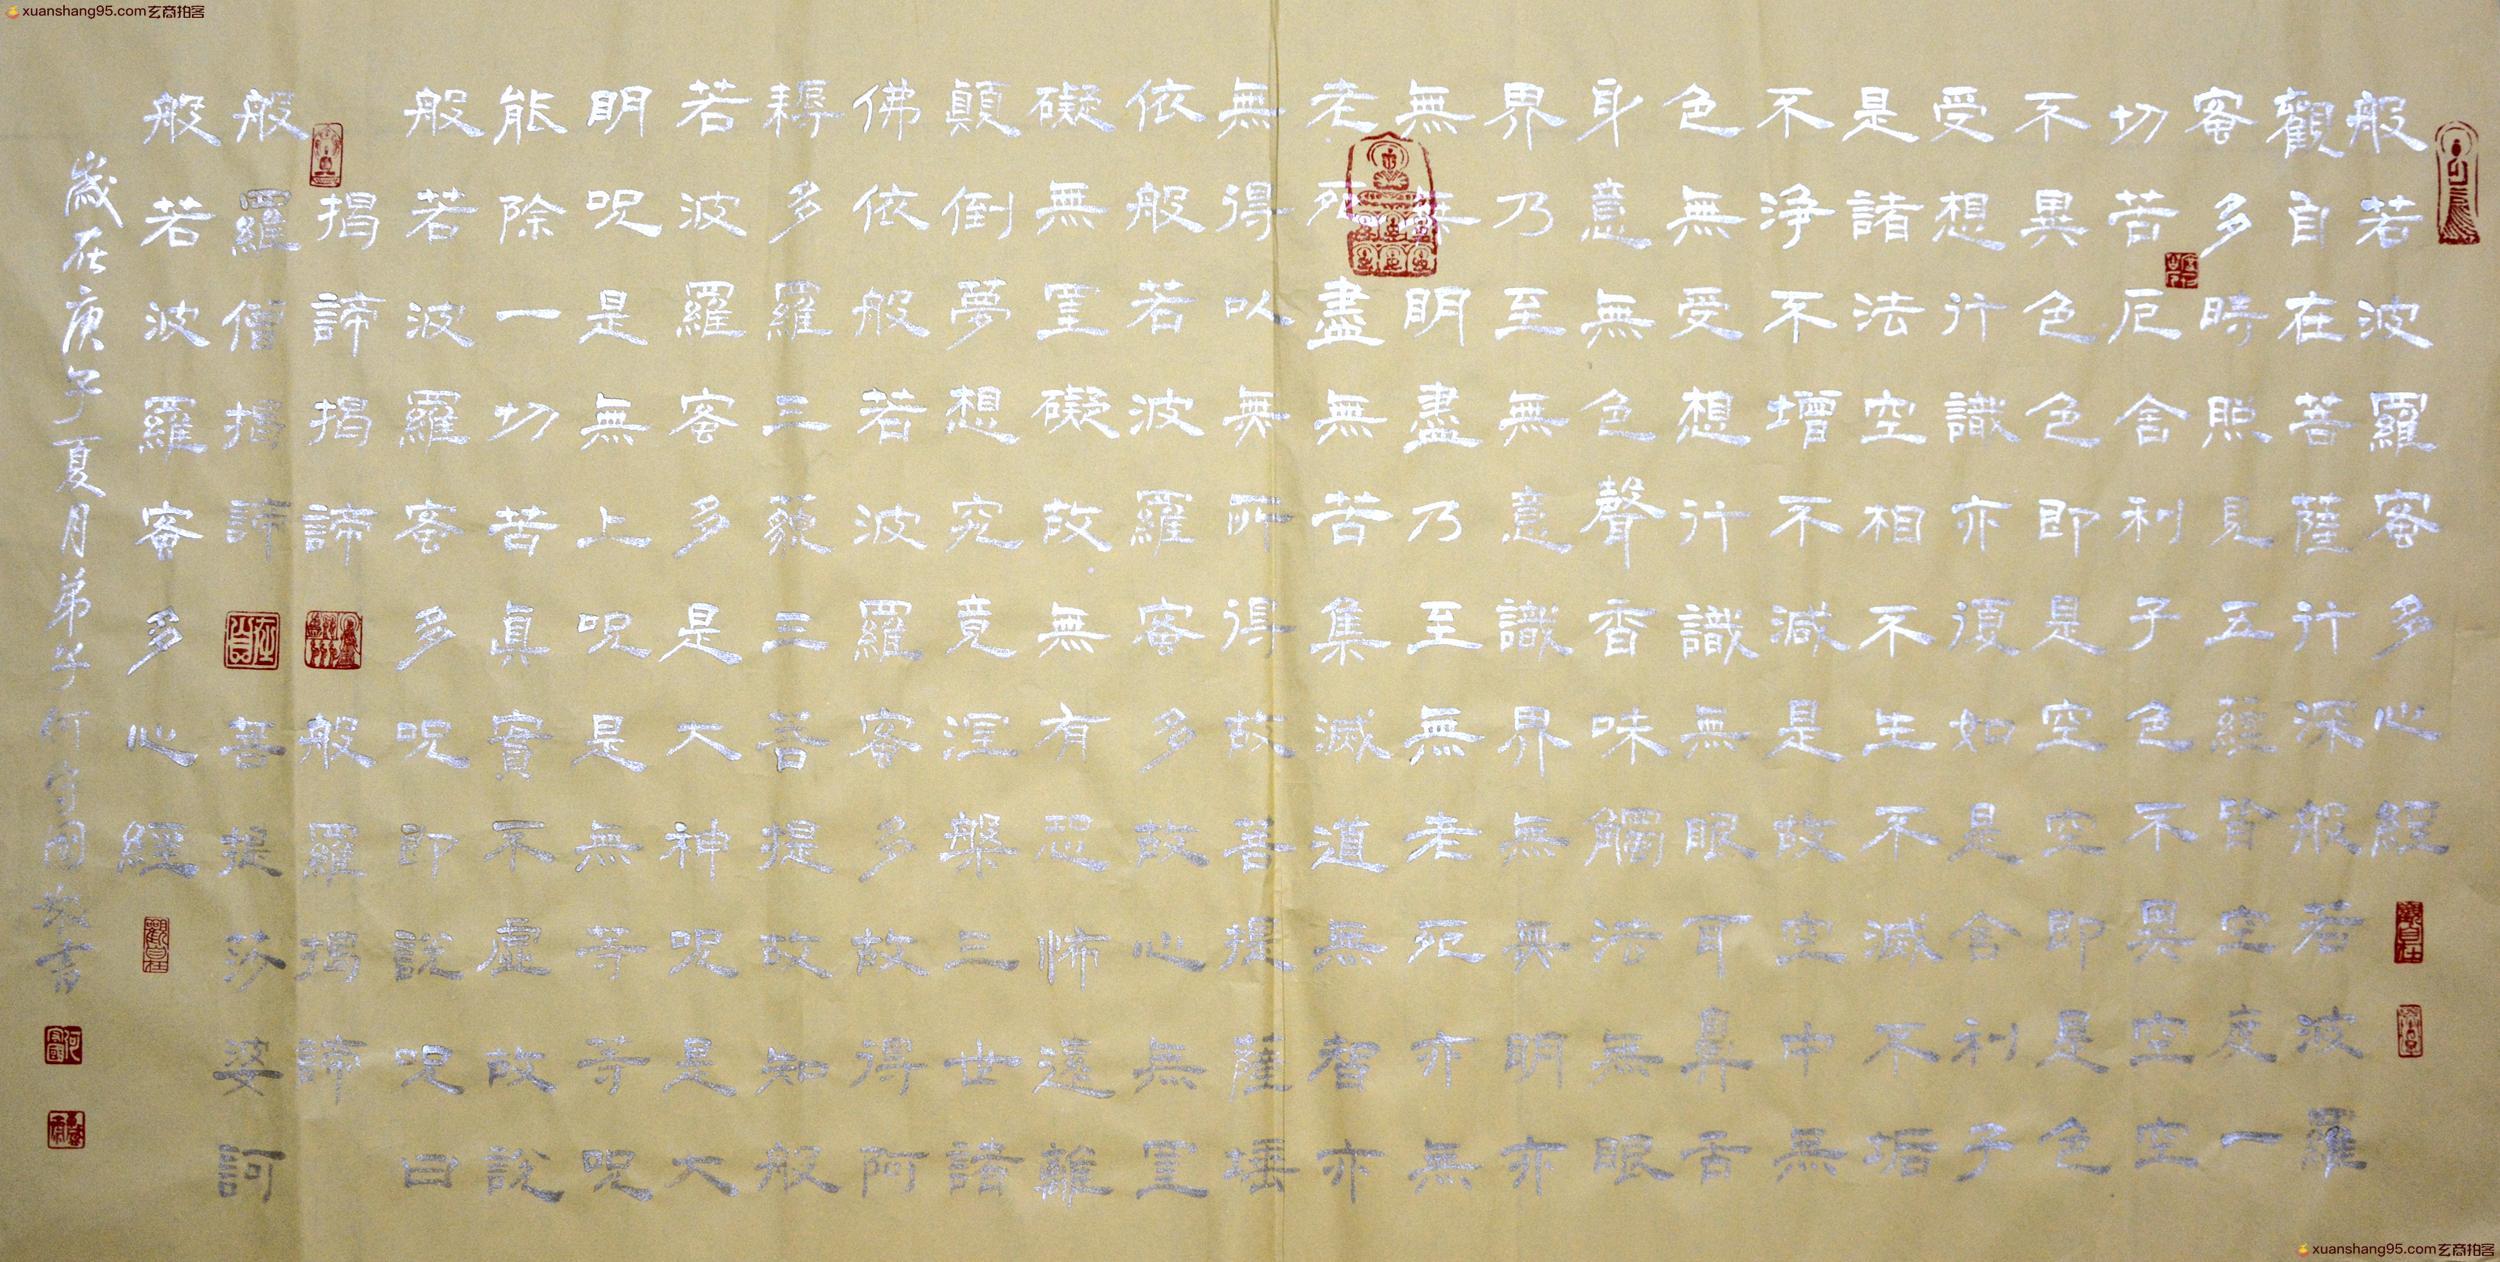 xuanshang95.com玄商拍客
般若波羅蜜多心經
觀自在菩薩行深般若波羅
蜜多時照見五蘊皆空度一
切苦厄舍利子色不異空空
不異色色即是空空即是色
受想行識亦復如是舍利子
是諸法空相不生不滅不垢
不淨不增不減是故空中無
色無受想行識無眼耳鼻舌
身意無色聲香味觸法無眼
界乃至無意識界無無明亦
無無明盡乃至無老死亦無
老死盡無苦集滅道無智亦
無得以無所得故菩提薩埵
依般若波羅蜜多故心無罣
礙無罣礙故無有恐怖遠離
顛倒夢想究竟涅槃三世諸
佛依般若波羅蜜多故得阿
耨多羅三藐三菩提故知般
若波羅蜜多是大神呪是大
明呪是無上呪是無等等呪
能除一切苦真實不虛故說
般若波羅蜜多呪即說呪曰
揭諦揭諦般羅揭諦
般羅僧揭諦菩提莎婆訶
般若波羅蜜多心經
歲在庚子夏月弟子何守國敬書
觀自在
觀自在
xuanshang95.com玄商拍客